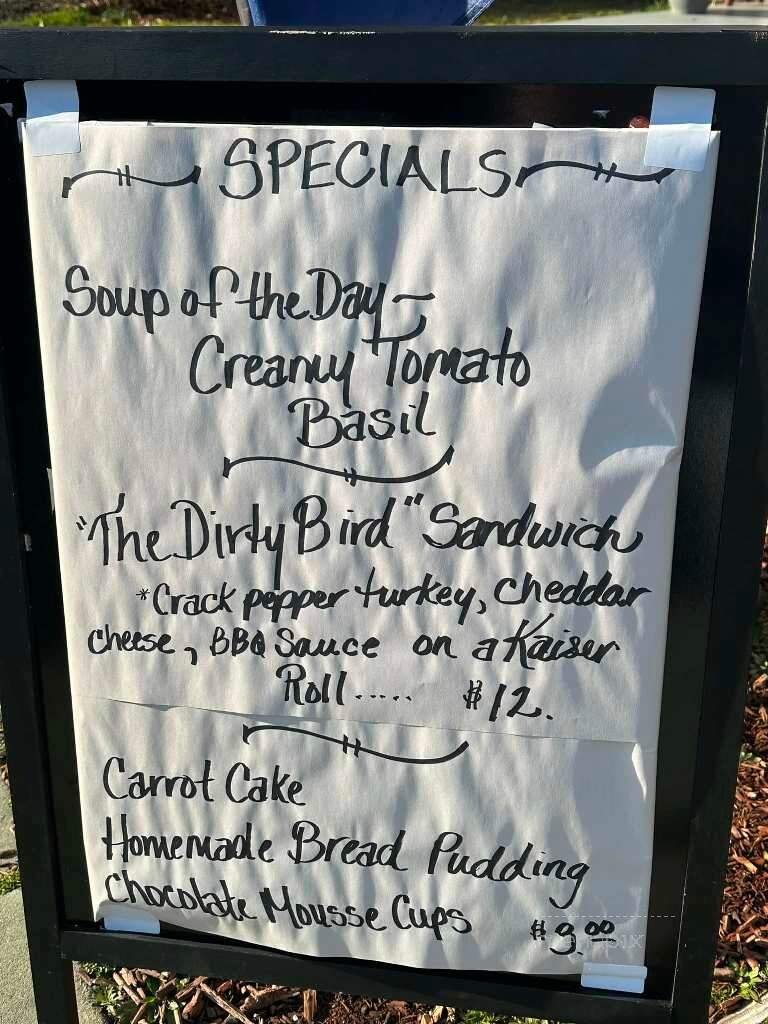 SPECIALS
Soup of the Day ~
Creamy Tomato
Basil
"The Dirty Bird" Sandwich
*Crack pepper turkey, cheddar
cheese, BBQ Sauce on a Kaiser
Roll..... $12.
Carrot Cake
Homemade Bread Pudding
Chocolate Mousse Cups